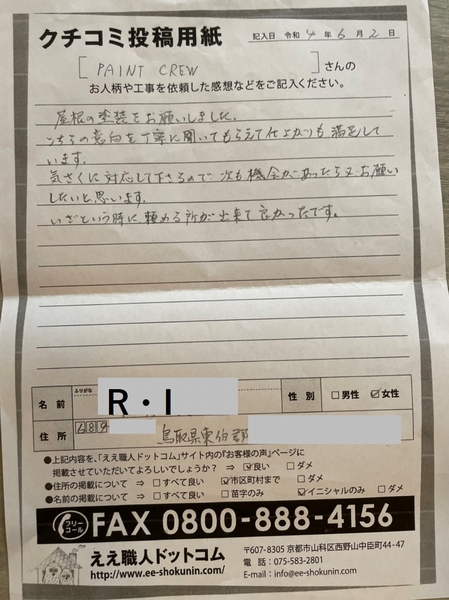 クチコミ投稿用紙
記入日 令和 4 年 6 月 2 日
[ PAINT CREW ] さんの
お人柄や工事を依頼した感想などをご記入ください。
屋根の塗装をお願いしました。
こちらの意向を丁寧に聞いてもらえて仕上がりも満足して
います。
気さくに対応して下さるので次も機会があったら又お願い
したいと思います。
いざという時に頼める所が出来て良かったです。
ふりがな
名前 R・I 性別 □男性 ☑女性
住所 689 鳥取県東伯郡
●上記内容を、「ええ職人ドットコム」サイト内の『お客様の声』ページに
掲載させていただいてよろしいでしょうか? ⇒ ☑良い □ダメ
●住所の掲載について ⇒ □すべて良い ☑市区町村まで □ダメ
●名前の掲載について ⇒ □すべて良い □苗字のみ ☑イニシャルのみ □ダメ
フリーコール FAX 0800-888-4156
ええ職人ドットコム
http://www.ee-shokunin.com/
〒607-8305 京都市山科区西野山中臣町44-47
電話:075-583-2801
E-mail:info@ee-shokunin.com